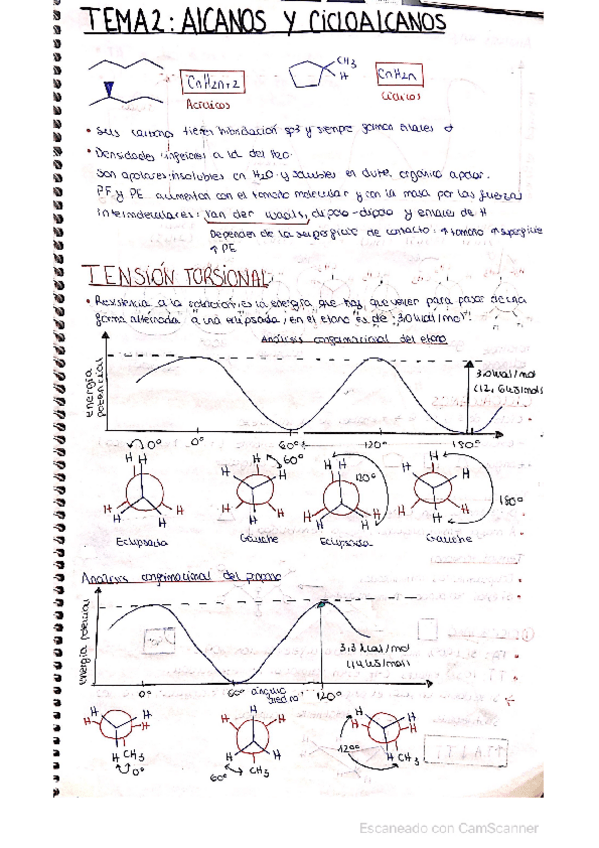 TEMA 2: AlCANOS Y CiCLOAlCANOS
CH3
H
CnH2n+2
CnH2n
Acíclicos
Cíclicos
• Sus carbonos tienen hibridación sp3 y siempre forman enlaces σ
• Densidades inferiores a la del H2O.
Son apolares: insolubles en H2O y solubles en dvte. orgánico apolar.
PF y PE aumentan con el tamaño molecular y con la masa por las fuerzas
intermoleculares: Van der Waals, dipolo-dipolo y enlaces de H
Dependen de la superficie de contacto: ↑tamaño ↑superficie
↑ PE
TENSIÓN TORSIONAL
• Resistencia a la rotación, es la energía que hay que vencer para pasar de una
forma alternada a una eclipsada, en el etano es de "3.0 kcal/mol".
Análisis conformacional del etano
energía
potencial
3.0 kcal/mol
(12,6 kJ/mol)
0° 60° 120° 180°
0°
60°
120°
180°
H H H H H H
H H H H H H
H H H H H H
H H H H H H
Eclipsada Gauche Eclipsada Gauche
Análisis conformacional del propano
energía potencial
3.3 kcal/mol
(14 kJ/mol)
0° 60° ángulo diedro 120°
H H H H H CH3
0°
H H H H H CH3
60°
H H H H H CH3
120°
Escaneado con CamScanner